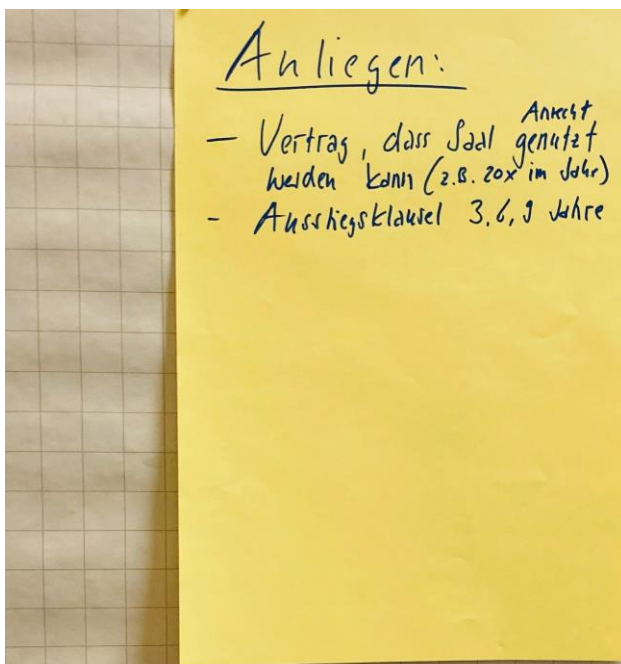 Anliegen:
Anrecht
– Vertrag, dass Saal genutzt
werden kann (z.B. 20x im Jahr)
- Ausstiegsklausel 3, 6, 9 Jahre